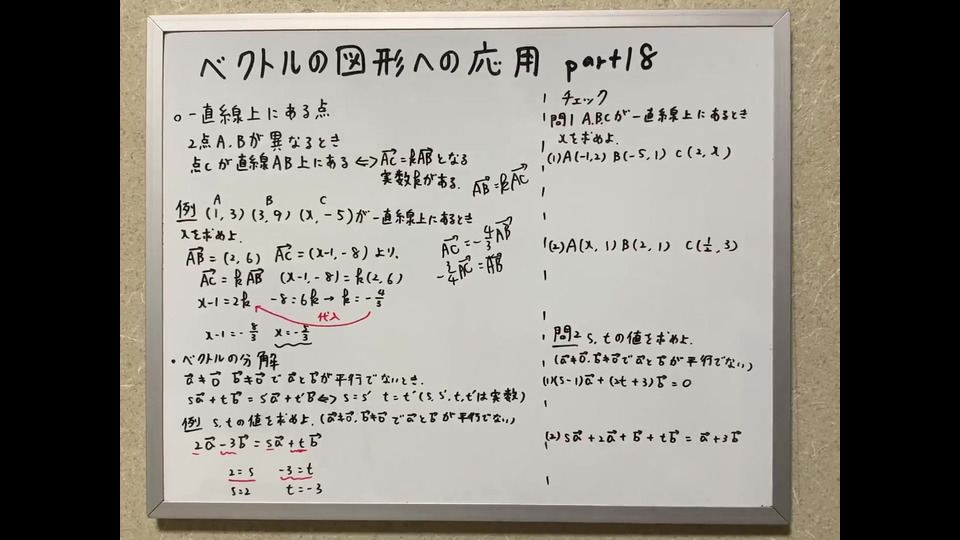 ベクトルの図形への応用 part18
○一直線上にある点
2点A.Bが異なるとき
点Cが直線AB上にある⇔AC→=kAB→となる
実数kがある.
AB→=kAC→
A B C
例 (1,3) (3,9) (x,-5)が一直線上にあるとき
xを求めよ.
AB→=(2,6) AC→=(x-1,-8)より,
AC→=kAB→ (x-1,-8)=k(2,6)
x-1=2k -8=6k→k=-4/3
代入
x-1=-8/3 x=-5/3
AC→=-4/3AB→
-3/4AC→=AB→
・ベクトルの分解
a→≠0→ b→≠0→でa→とb→が平行でないとき.
sa→+tb→=s'a→+t'b→⇔s=s' t=t'(s,s',t,t'は実数)
例 s,tの値を求めよ.(a→≠0→.b→≠0→でa→とb→が平行でない)
2a→-3b→=sa→+tb→
2=s -3=t
s=2 t=-3
チェック
問1 A.B.Cが一直線上にあるとき
xを求めよ.
(1)A(-1,2) B(-5,1) C(2,x)
(2)A(x,1) B(2,1) C(1/2,3)
問2 s,tの値を求めよ.
(a→≠0→.b→≠0→でa→とb→が平行でない)
(1)(s-1)a→+(2t+3)b→=0
(2)sa→+2a→+b→+tb→=a→+3b→